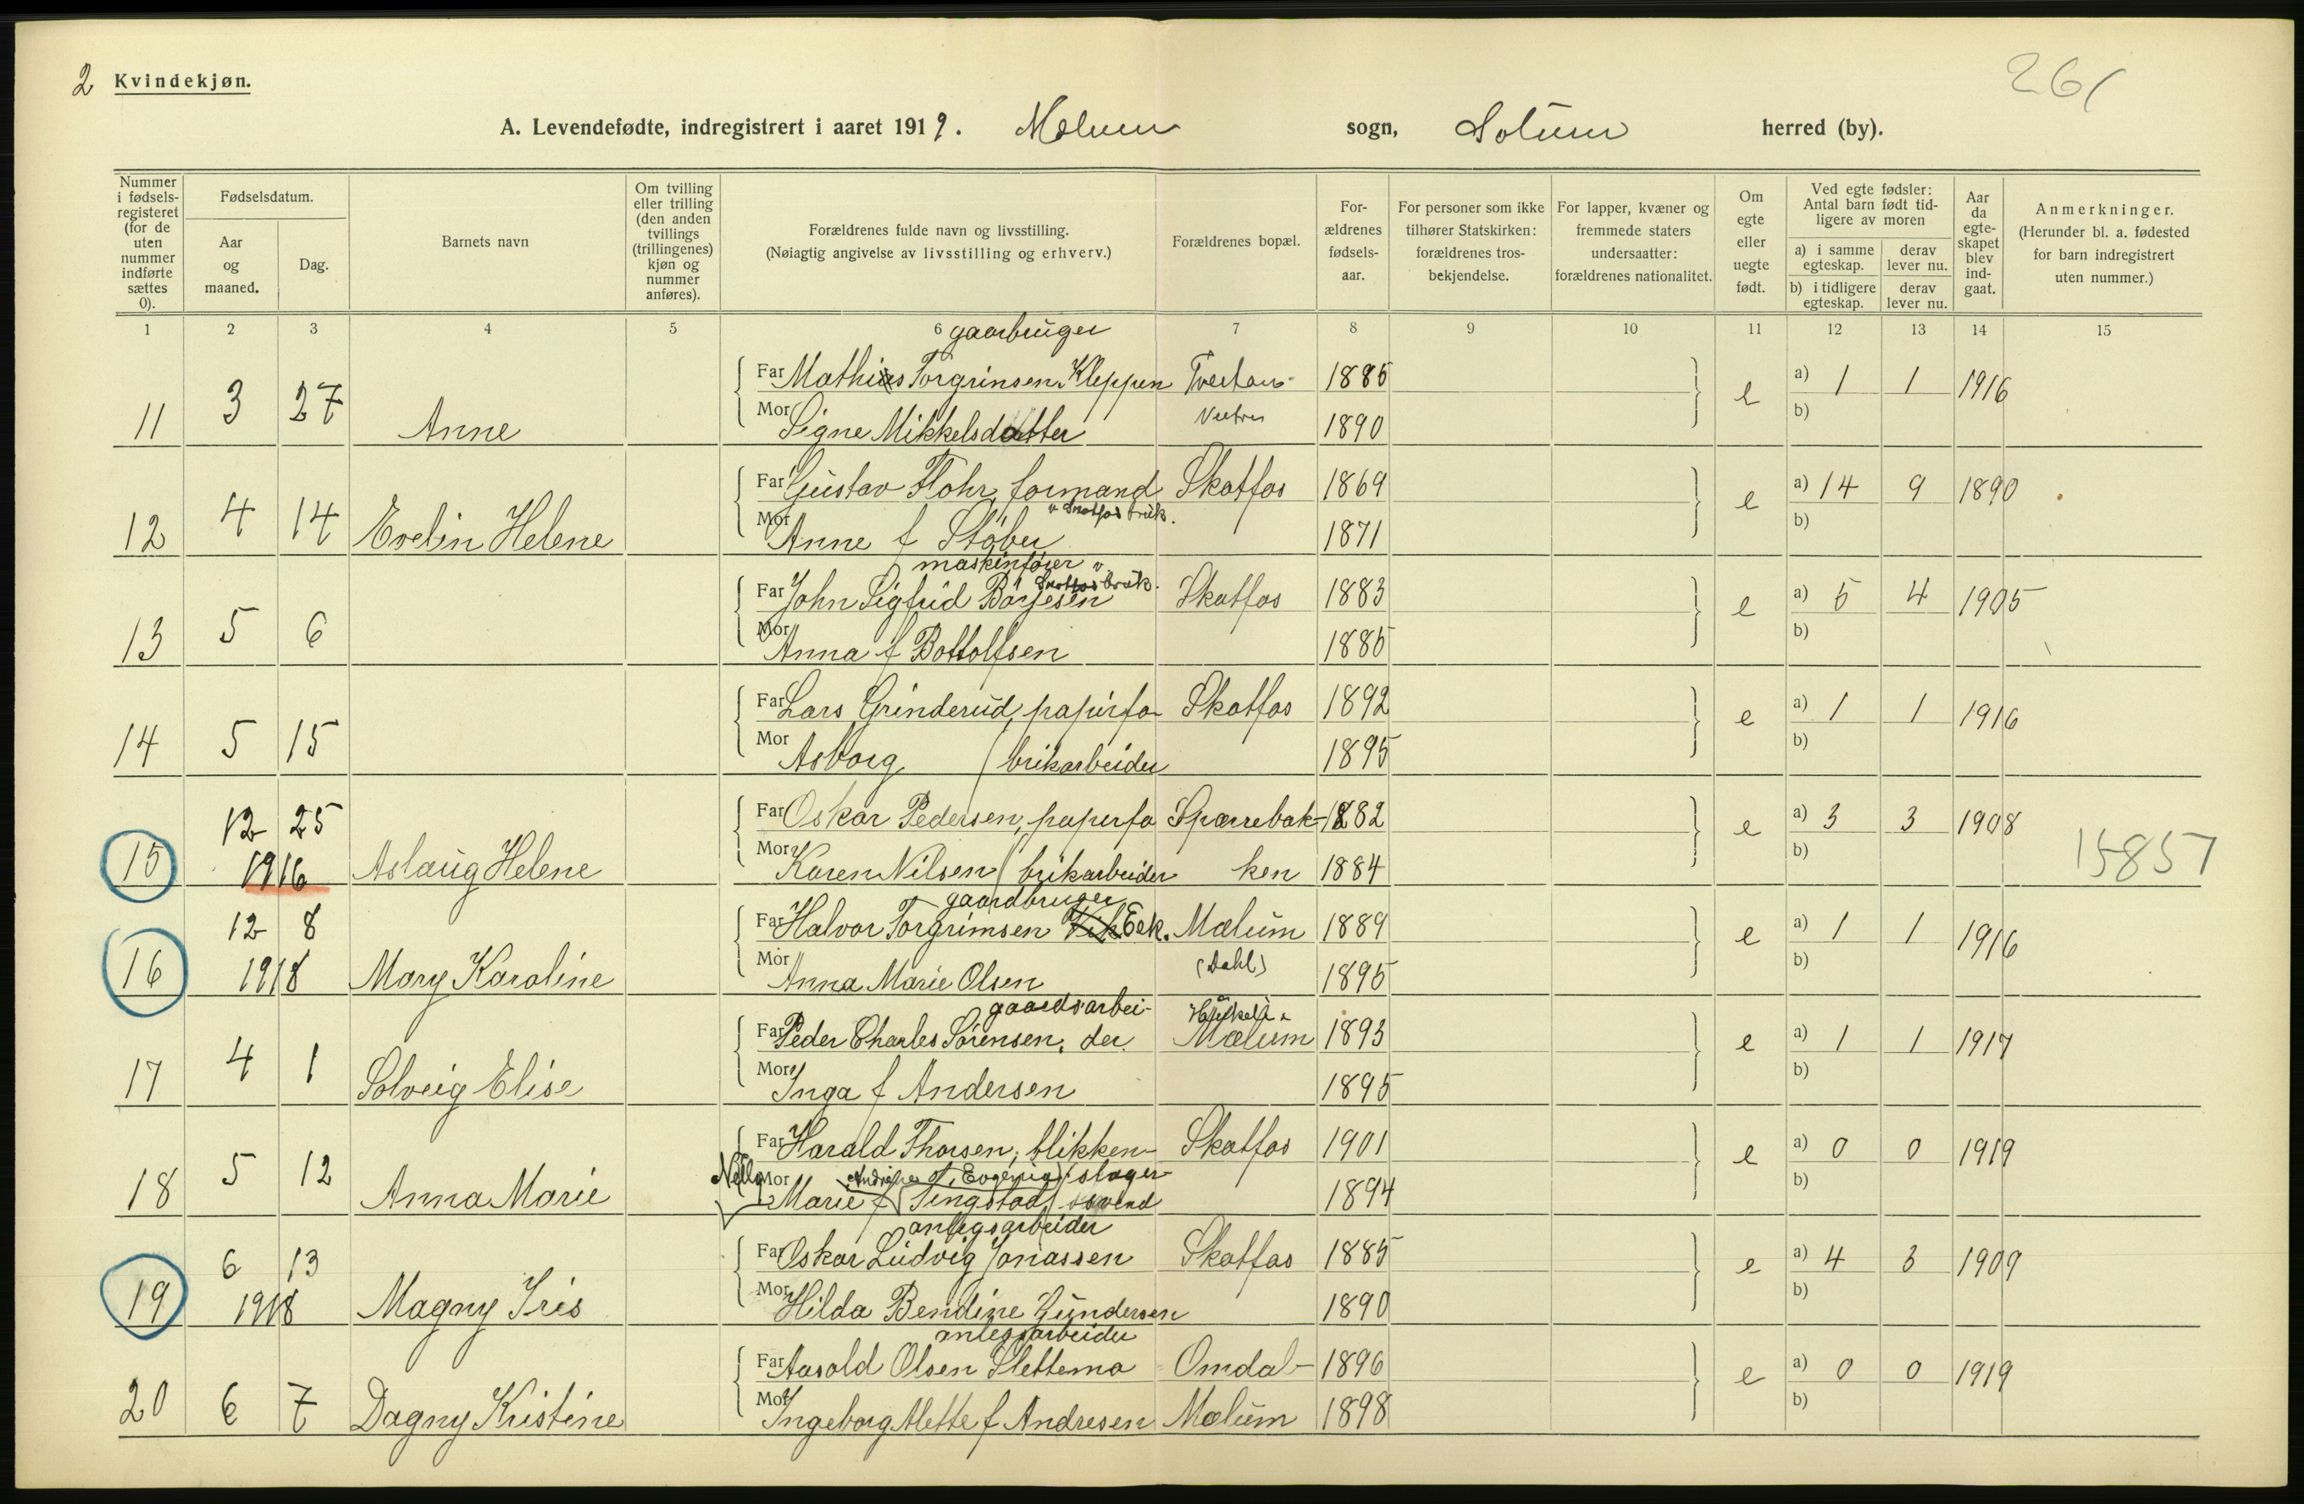 2 Kvindekjøn.
261
A. Levendefødte, indregistrert i aaret 1919. Mælum sogn, Solum herred (by).
Nummer i fødsels-registeret (for de uten nummer indførte sættes 0).
Fødselsdatum.
Aar og maaned.
Dag.
Barnets navn
Om tvilling eller trilling (den anden tvillings (trillingenes) kjøn og nummer anføres).
Forældrenes fulde navn og livsstilling.
(Nøiagtig angivelse av livsstilling og erhverv.)
Forældrenes bopæl.
For-ældrenes fødsels-aar.
For personer som ikke tilhører Statskirken: forældrenes tros-bekjendelse.
For lapper, kvæner og fremmede staters undersaatter: forældrenes nationalitet.
Om egte eller uegte født.
Ved egte fødsler: Antal barn født tid-ligere av moren
a) i samme egteskap.
derav lever nu.
b) i tidligere egteskap.
derav lever nu.
Aar da egte-skapet blev ind-gaat.
Anmerkninger.
(Herunder bl. a. fødested for barn indregistrert uten nummer.)
1 2 3 4 5 6 7 8 9 10 11 12 13 14 15
gaarbruger
Far Mathias Torgrinsen Kleppen Tvetan- 1885 a) 1 1 1916
11 3 27 Anne e b)
Mor Signe Mikkelsdatter 1890
Far Gustav Flohr, formand Skotfos 1869 a) 14 9 1890
v Skotfos bruk.
12 4 14 Evelin Helene e b)
Mor Anne f Støber 1871
maskinfører v.
Skotfos bruk.
Far John Sigfrid Børjesen Skotfos 1883 a) 5 4 1905
13 5 6 e b)
Mor Anna f Bottolfsen 1885
Far Lars Grinderud, papirfa- Skotfos 1892 a) 1 1 1916
14 5 15 e b)
Mor Asborg brikarbeider 1895
Far Oskar Pedersen, papirfa Sparrebak- 1882 a) 3 3 1908
12 25
15 1916 Aslaug Helene e b) 15857
Mor Karen Nilsen brikarbeider ken 1884
gaardbruger
Far Halvor Torgrimsen Vik Eek. Mælum 1889 a) 1 1 1916
12 8
16 1918 Mary Karoline e b)
Mor Anna Marie Olsen (Dahl) 1895
gaardsarbei-
Far Peder Charles Sørensen, der. Mælum 1893 a) 1 1 1917
17 4 1 Solveig Elise e b)
Mor Inga f Andersen 1895
Far Harald Thorsen, blikken- Skotfos 1901 a) 0 0 1919
18 5 12 Anna Marie e b)
Nelly Eugenia slager-
Mor Marie f Tingstad, svend 1894
anlegsarbeider
Far Oskar Ludvig Jonassen Skotfos 1885 a) 4 3 1909
6 13
19 1918 Magny Iris e b)
Mor Hilda Bendine Gundersen 1890
anlegsarbeider
Far Aasold Olsen Slettemo Omdal- 1896 a) 0 0 1919
20 6 7 Dagny Kristine e b)
Mor Ingeborg Mette f Andresen Mælum 1898